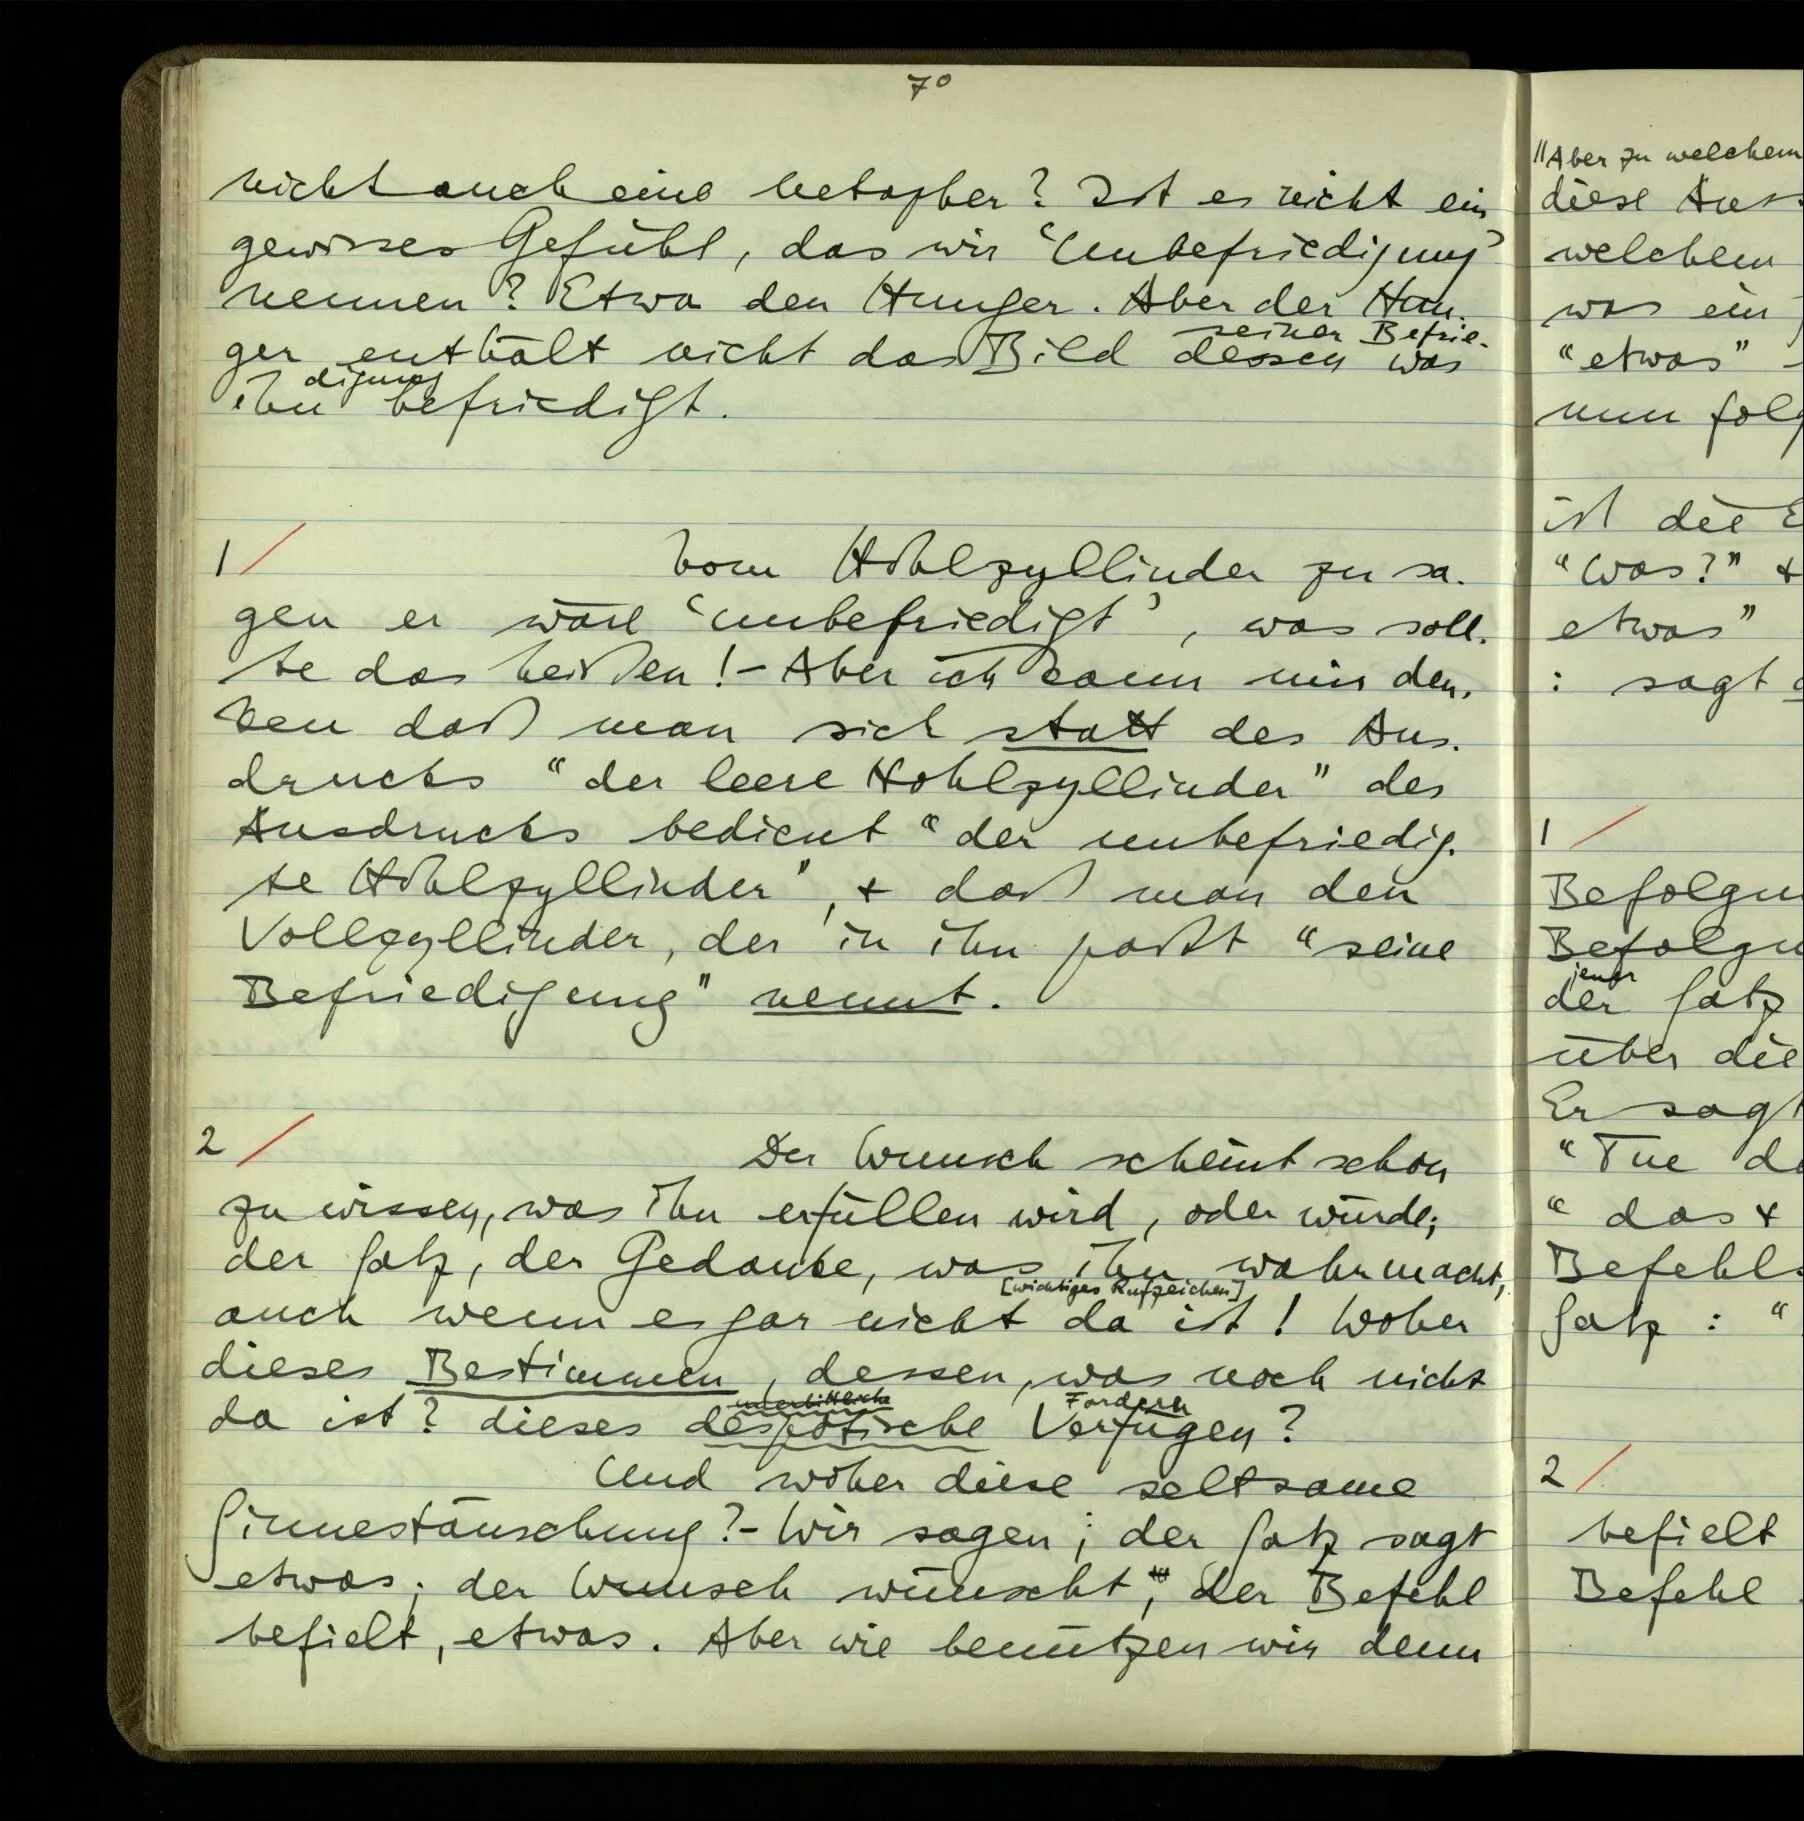 70
nicht auch eine Metapher? Ist es nicht ein
gewisses Gefühl, das wir ‘Unbefriedigung’
nennen? Etwa den Hunger. Aber der Hun-
seiner Befrie-
ger enthält nicht das Bild dessen was
digung
ihn befriedigt.
1/ Vom Hohlzyllinder zu sa-
gen er wäre ‘unbefriedigt’, was soll-
te das heißen! – Aber ich kann mir den-
ken daß man sich statt des Aus-
drucks “der leere Hohlzyllinder” des
Ausdrucks bedient “der unbefriedig-
te Hohlzyllinder”, + daß man den
Vollzyllinder, der in ihn paßt “seine
Befriedigung” nennt.
2/ Der Wunsch scheint schon
zu wissen, was ihn erfüllen wird, oder würde;
der Satz, der Gedanke, was ihn wahr macht,
[wichtiges Rufzeichen]
auch wenn es gar nicht da ist! Woher
dieses Bestimmen, dessen, was noch nicht
unerbittliche Fordern
da ist? dieses despotische Verfügen?
Und woher diese seltsame
Sinnestäuschung? – Wir sagen; der Satz sagt
etwas; der Wunsch wünscht, der Befehl
befielt, etwas. Aber wie benützen wir denn
"Aber zu welchem
diese Aus
welchem
was ein
“etwas” –
nun folg
ist die E
“Was?” +
etwas”
: sagt
1/
Befolgu
Befolgu
jener
der Satz
über die
Er sagt
“Tue da
“das +
Befehls
Satz : “
2/
befielt
Befehl